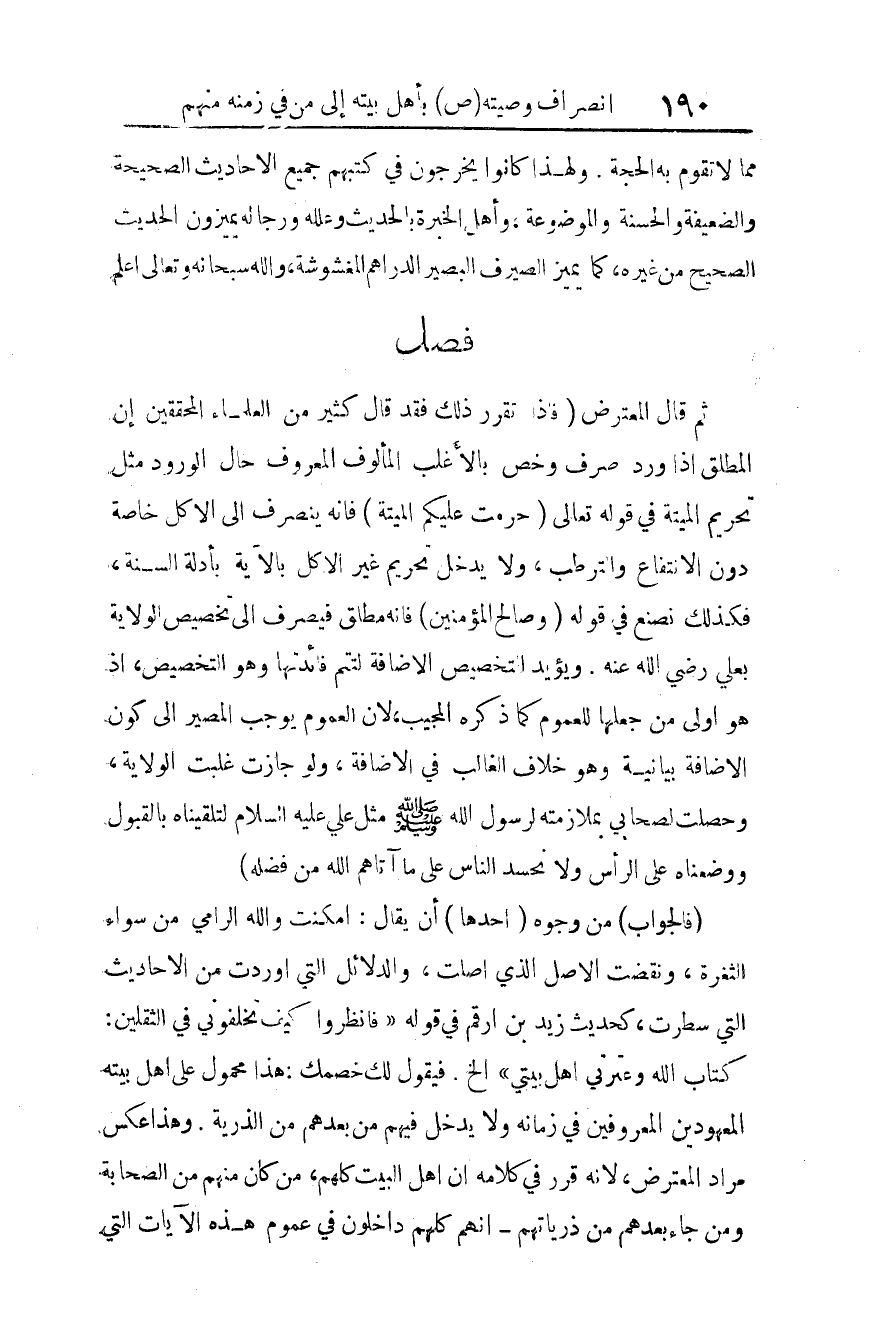 ١٩٠ انصراف وصيته (ص) بأهل بيته إلى من في زمنه منهم
مما لا تقوم به الحجة . ولهـذا كانوا يخرجون في كتبهم جميع الاحاديث الصحيحة
والضعيفة والحسنة والموضوعة ، وأهل الخبرة بالحديث وعلله ورجاله يميزون الحديث
الصحيح من غيره، كما يميز الصيرف البصير الدراهم المغشوشة، والله سبحانه وتعالى اعلم
فصل
ثم قال المعترض ( فاذا تقرر ذلك فقد قال كثير من العلمـاء المحققين إن
المطلق اذا ورد صرف وخص بالأغلب المألوف المعروف حال الورود مثل
تحريم الميتة في قوله تعالى ( حرمت عليكم الميتة ) فانه ينصرف الى الاكل خاصة
دون الانتفاع والترطب ، ولا يدخل تحريم غير الاكل بالآية بأدلة السـنة ،
فكذلك نصنع في قوله ( وصالح المؤمنين ) فانه مطلق فيصرف الى تخصيص الولاية
بعلي رضي الله عنه . ويؤيد التخصيص الاضافة لتتم فائدتها وهو التخصيص، اذ
هو اولى من جعلها للعموم كما ذكره المجيب، لان العموم يوجب المصير الى كون
الاضافة بيانيـة وهو خلاف الغالب في الاضافة ، ولو جازت غلبت الولاية ،
وحصلت لصحابي بملازمته لرسول الله ﷺ مثل علي عليه السلام لتلقيناه بالقبول
ووضعناه على الرأس ولا نحسد الناس على ما آتاهم الله من فضله)
(فالجواب) من وجوه ( احدها ) أن يقال : امكنت والله الرامي من سواء
الثغرة ، ونقضت الاصل الذي اصلت ، والدلائل التي اوردت من الاحاديث
التي سطرت، كحديث زيد بن ارقم في قوله « فانظروا كيف تخلفوني في الثقلين :
كتاب الله وعترتي اهل بيتي» الخ . فيقول لك خصمك : هذا محمول على اهل بيته
المعهودين المعروفين في زمانه ولا يدخل فيهم من بعدهم من الذرية . وهذا عكس
مراد المعترض، لانه قرر في كلامه ان اهل البيت كلهم، من كان منهم من الصحابة
ومن جاء بعدهم من ذرياتهم – انهم كلهم داخلون في عموم هـذه الآيات التي